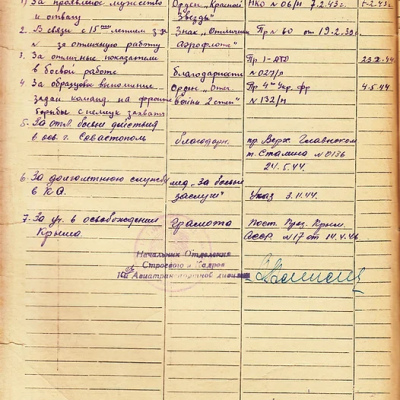 1) За проявленое мужество Орден „Красной НКО № 06/н 7.2.43г.
и отвагу Звезды"
2. В связи с 15 летием Знак „Отличник Пр № 60 от 19.2.38г.
за отличную работу Аэрофлота"
3. За отличные показатели Пр 1-
в боевой работе Благодарность № 027/п
4 За образцовое выполнение Орден „Отеч. Пр 4ой Укр. фр 4.5.44.
задан команд. на фронте войны 2 степ" № 132/н
борьбы с немецк. захватч.
5. За отл. боевые действия
в осв. г. Севастополь благодарн. пр. Верх. Главнокоm
т. Сталина № 0136
24.5.44.
6. За долголетнюю службу мед. „За боевые
в К.А. заслуги" Указ 3.11.44.
7. За уч. в освобождении Грамота Пост. През. Крым.
Крыма АССР № 17 от 14.4.46
Начальник Отделения
Строевого и Кадров
10 Авиатранспортной дивизии